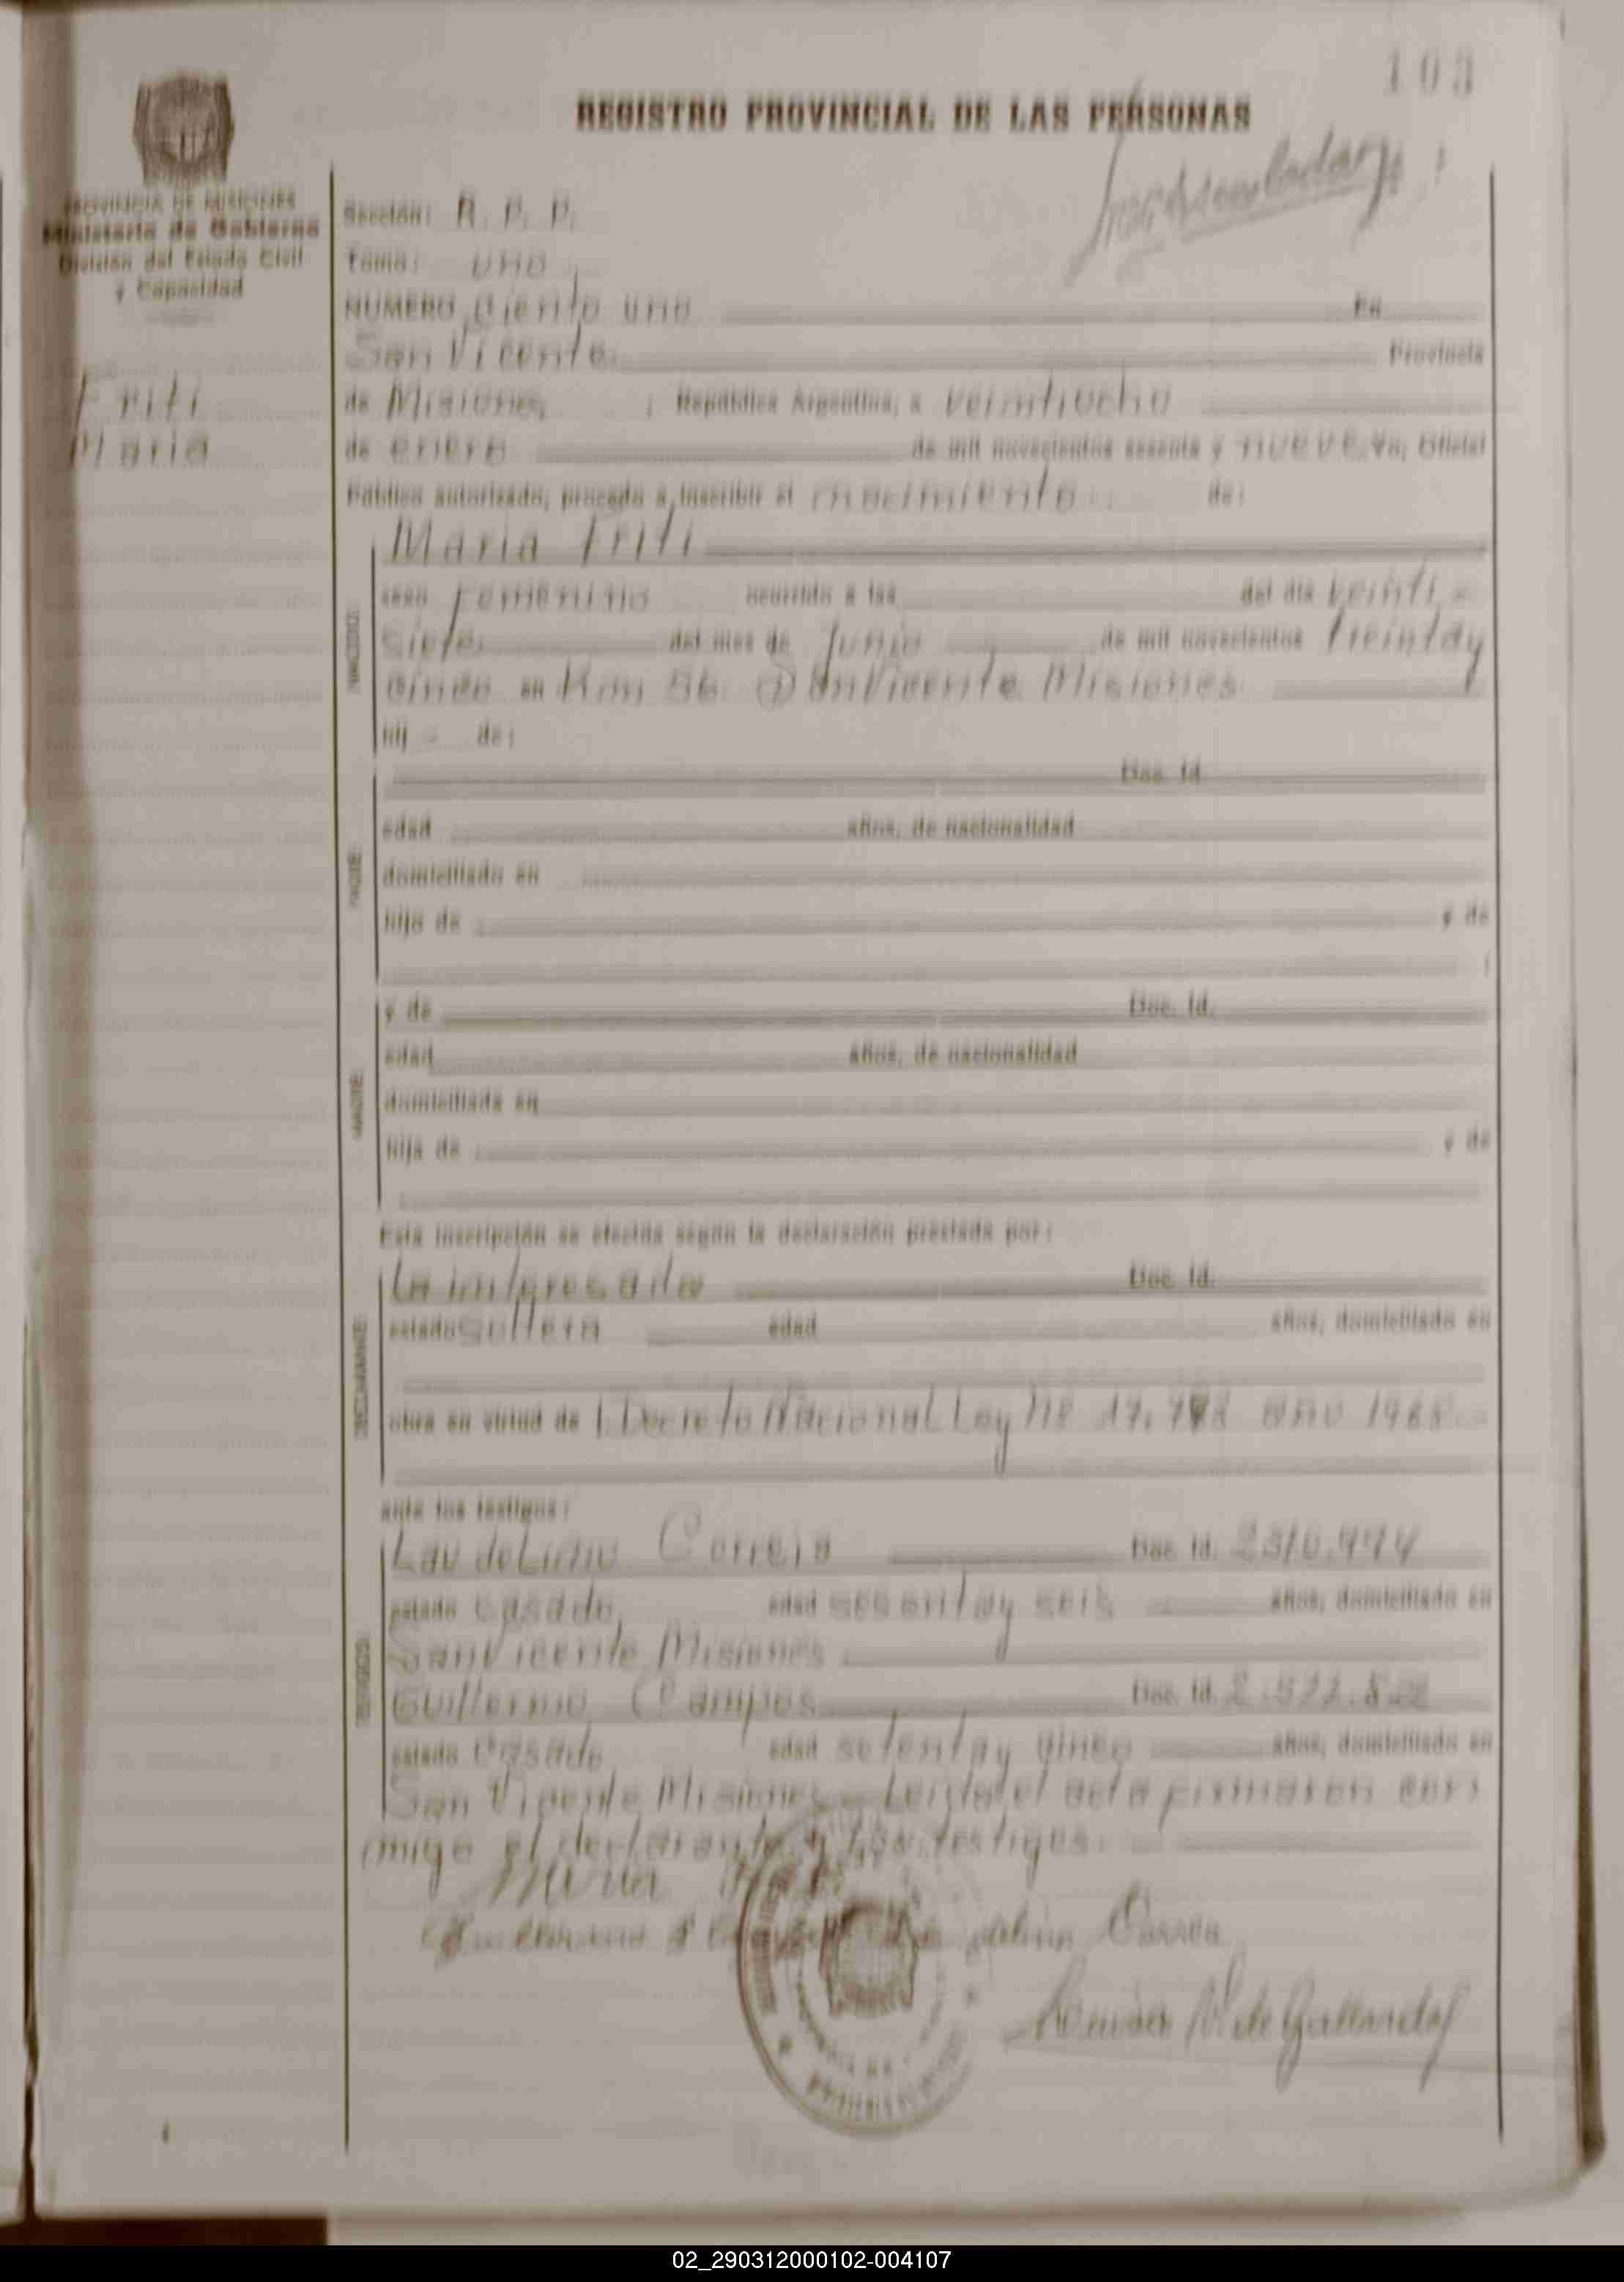 103
REGISTRO PROVINCIAL DE LAS PERSONAS
PROVINCIA DE MISIONES
Ministerio de Gobierno
División del Estado Civil
y Capacidad
Friti
Maria
Sección: R. P. P.
Tomo: uno
NUMERO Ciento uno En
San Vicente Provincia
de Misiones, República Argentina, a veintiocho
de enero de mil novecientos sesenta y nueve, Yo, Oficial
Público autorizado, procedo a inscribir el nacimiento de:
Maria Friti
NACIDO:
sexo femenino ocurrido a las del día veinti-
siete del mes de Junio de mil novecientos treinta y
cinco en Km 56 San Vicente Misiones
hij - de:
PADRE:
Doc. Id.
edad años, de nacionalidad
domiciliado en
hijo de y de
MADRE:
y de Doc. Id.
edad años, de nacionalidad
domiciliada en
hija de y de
Esta inscripción se efectúa según la declaración prestada por:
DECLARANTE:
La interesada Doc. Id.
estado soltera edad años, domiciliado en
obra en virtud de Decreto Nacional Ley Nº año 1968
ante los testigos:
TESTIGOS:
Laudelino Correia Doc. Id.
estado casado, edad sesenta y seis años, domiciliado en
San Vicente Misiones
Guillermo Campos Doc. Id.
estado casado, edad setenta y cinco años, domiciliado en
San Vicente Misiones - Leida el acta firmaron con
migo el declarante y los testigos.
Maria
Correa
Luisa de Gallardo
02_290312000102-004107